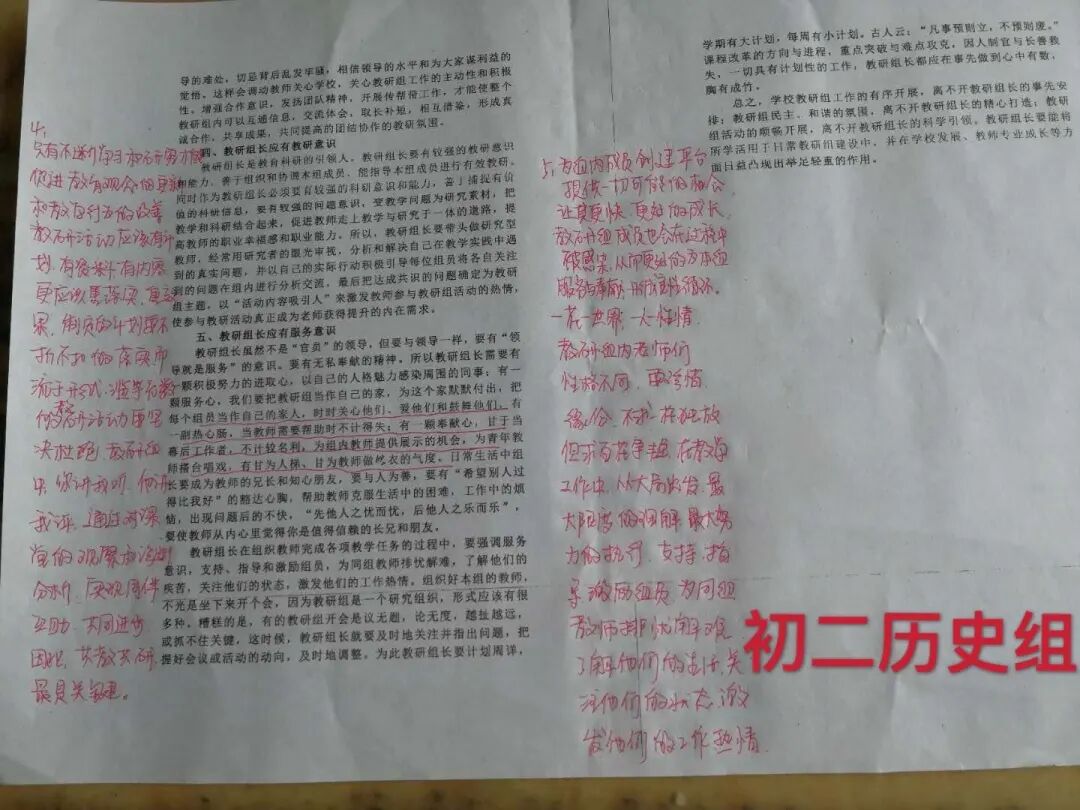 导的难处，切忌背后乱发牢骚，相信领导的水平和为大家谋利益的
觉悟。这样会调动教师关心学校，关心教研组工作的主动性和积极
性。增强合作意识，发扬团队精神，开展传帮带工作，才能使整个
教研组内可以互通信息，交流体会，取长补短，相互借鉴，形成真
诚合作，共享成果，共同提高的团结协作的教研氛围。
四、教研组长应有教研意识
教研组长是教育科研的引领人。教研组长要有较强的教研意识
和能力，善于组织和协调本组成员，能指导本组成员进行有效教研。
同时作为教研组长必须要有较强的科研意识和能力，善于捕捉有价
值的科研信息，要有较强的问题意识，变教学问题为研究素材，把
教学和科研结合起来，促进教师走上教学与研究于一体的道路，提
高教师的职业幸福感和职业能力。所以，教研组长要带头做研究型
教师，经常用研究者的眼光审视，分析和解决自己在教学实践中遇
到的真实问题，并以自己的实际行动积极引导每位组员将各自关注
到的问题在组内进行分析交流，最后把达成共识的问题确定为教研
组主题，以“活动内容吸引人”来激发教师参与教研组活动的热情，
使参与教研活动真正成为老师获得提升的内在需求。
五、教研组长应有服务意识
教研组长虽然不是“官员”的领导，但要与领导一样，要有“领
导就是服务”的意识。要有无私奉献的精神。所以教研组长需要有
一颗积极努力的进取心，以自己的人格魅力感染周围的同事；有一
颗服务心，我们要把教研组当作自己的家，为这个家默默付出，把
每个组员当作自己的家人，时时关心他们、爱他们和鼓舞他们。有
一副热心肠，当教师需要帮助时不计得失；有一颗奉献心，甘于当
幕后工作者，不计较名利，为组内教师提供展示的机会，为青年教
师搭台唱戏，有甘为人梯、甘为教师做嫁衣的气度。日常生活中组
长要成为教师的兄长和知心朋友，要与人为善，要有“希望别人过
得比我好”的豁达心胸，帮助教师克服生活中的困难，工作中的烦
恼，出现问题后的不快，“先他人之忧而忧，后他人之乐而乐”，
要使教师从内心里觉得你是值得信赖的长兄和朋友。
教研组长在组织教师完成各项教学任务的过程中，要强调服务
意识，支持、指导和激励组员，为同组教师排忧解难，了解他们的
疾苦，关注他们的状态，激发他们的工作热情。组织好本组的教师，
不光是坐下来开个会，因为教研组是一个研究组织，形式应该有很
多种，糟糕的是，有的教研组开会是议无题，论无度，越扯越远，
或抓不住关键，这时候，教研组长就要及时地关注并指出问题，把
握好会议或活动的动向，及时地调整。为此教研组长要计划周详，
学期有大计划，每周有小计划。古人云：“凡事预则立，不预则废。”
课程改革的方向与进程，重点突破与难点攻克，因人制宜与长善救
失，一切具有计划性的工作，教研组长都应在事先做到心中有数，
胸有成竹。
总之，学校教研组工作的有序开展，离不开教研组长的事先安
排；教研组民主、和谐的氛围，离不开教研组长的精心打造；教研
组活动的顺畅开展，离不开教研组长的科学引领。教研组长要能将
所学活用于日常教研组建设中，并在学校发展、教师专业成长等方
面日益凸现出举足轻重的作用。
4、
只有不断学习和研究才能
促进教育观念的更新
和教育行为的改善
教研活动应该有计
划，有资料，有内容
更应该惠落实，有效
果，制定的计划要不
折不扣的落实，而
流于形式、滥竽充数
的教研活动要坚
决杜绝，教研组
中，你讲我听，你听
我讲，通过对课
堂的观察和诊断
分析，实现同伴
互助，共同进步
因此，共教共研
最是关键。
5、为组内成员创建平台
提供一切可能的机会
让其更快、更好的成长，
教研组成员也会在过程中
被感染，从而更好的为本组
服务与奉献，形成良性循环。
一花一世界，一人一性情，
教研组内老师们
性格不同，要谈情
缘份，不求一枝独放
但求百花争艳，在教学
工作中，从大局出发，最
大限度的理解，最大努
力的执行，支持、指
导激励组员，为同组
教师排忧解难
了解他们的生活，关
注他们的状态，激
发他们的工作热情。
初二历史组